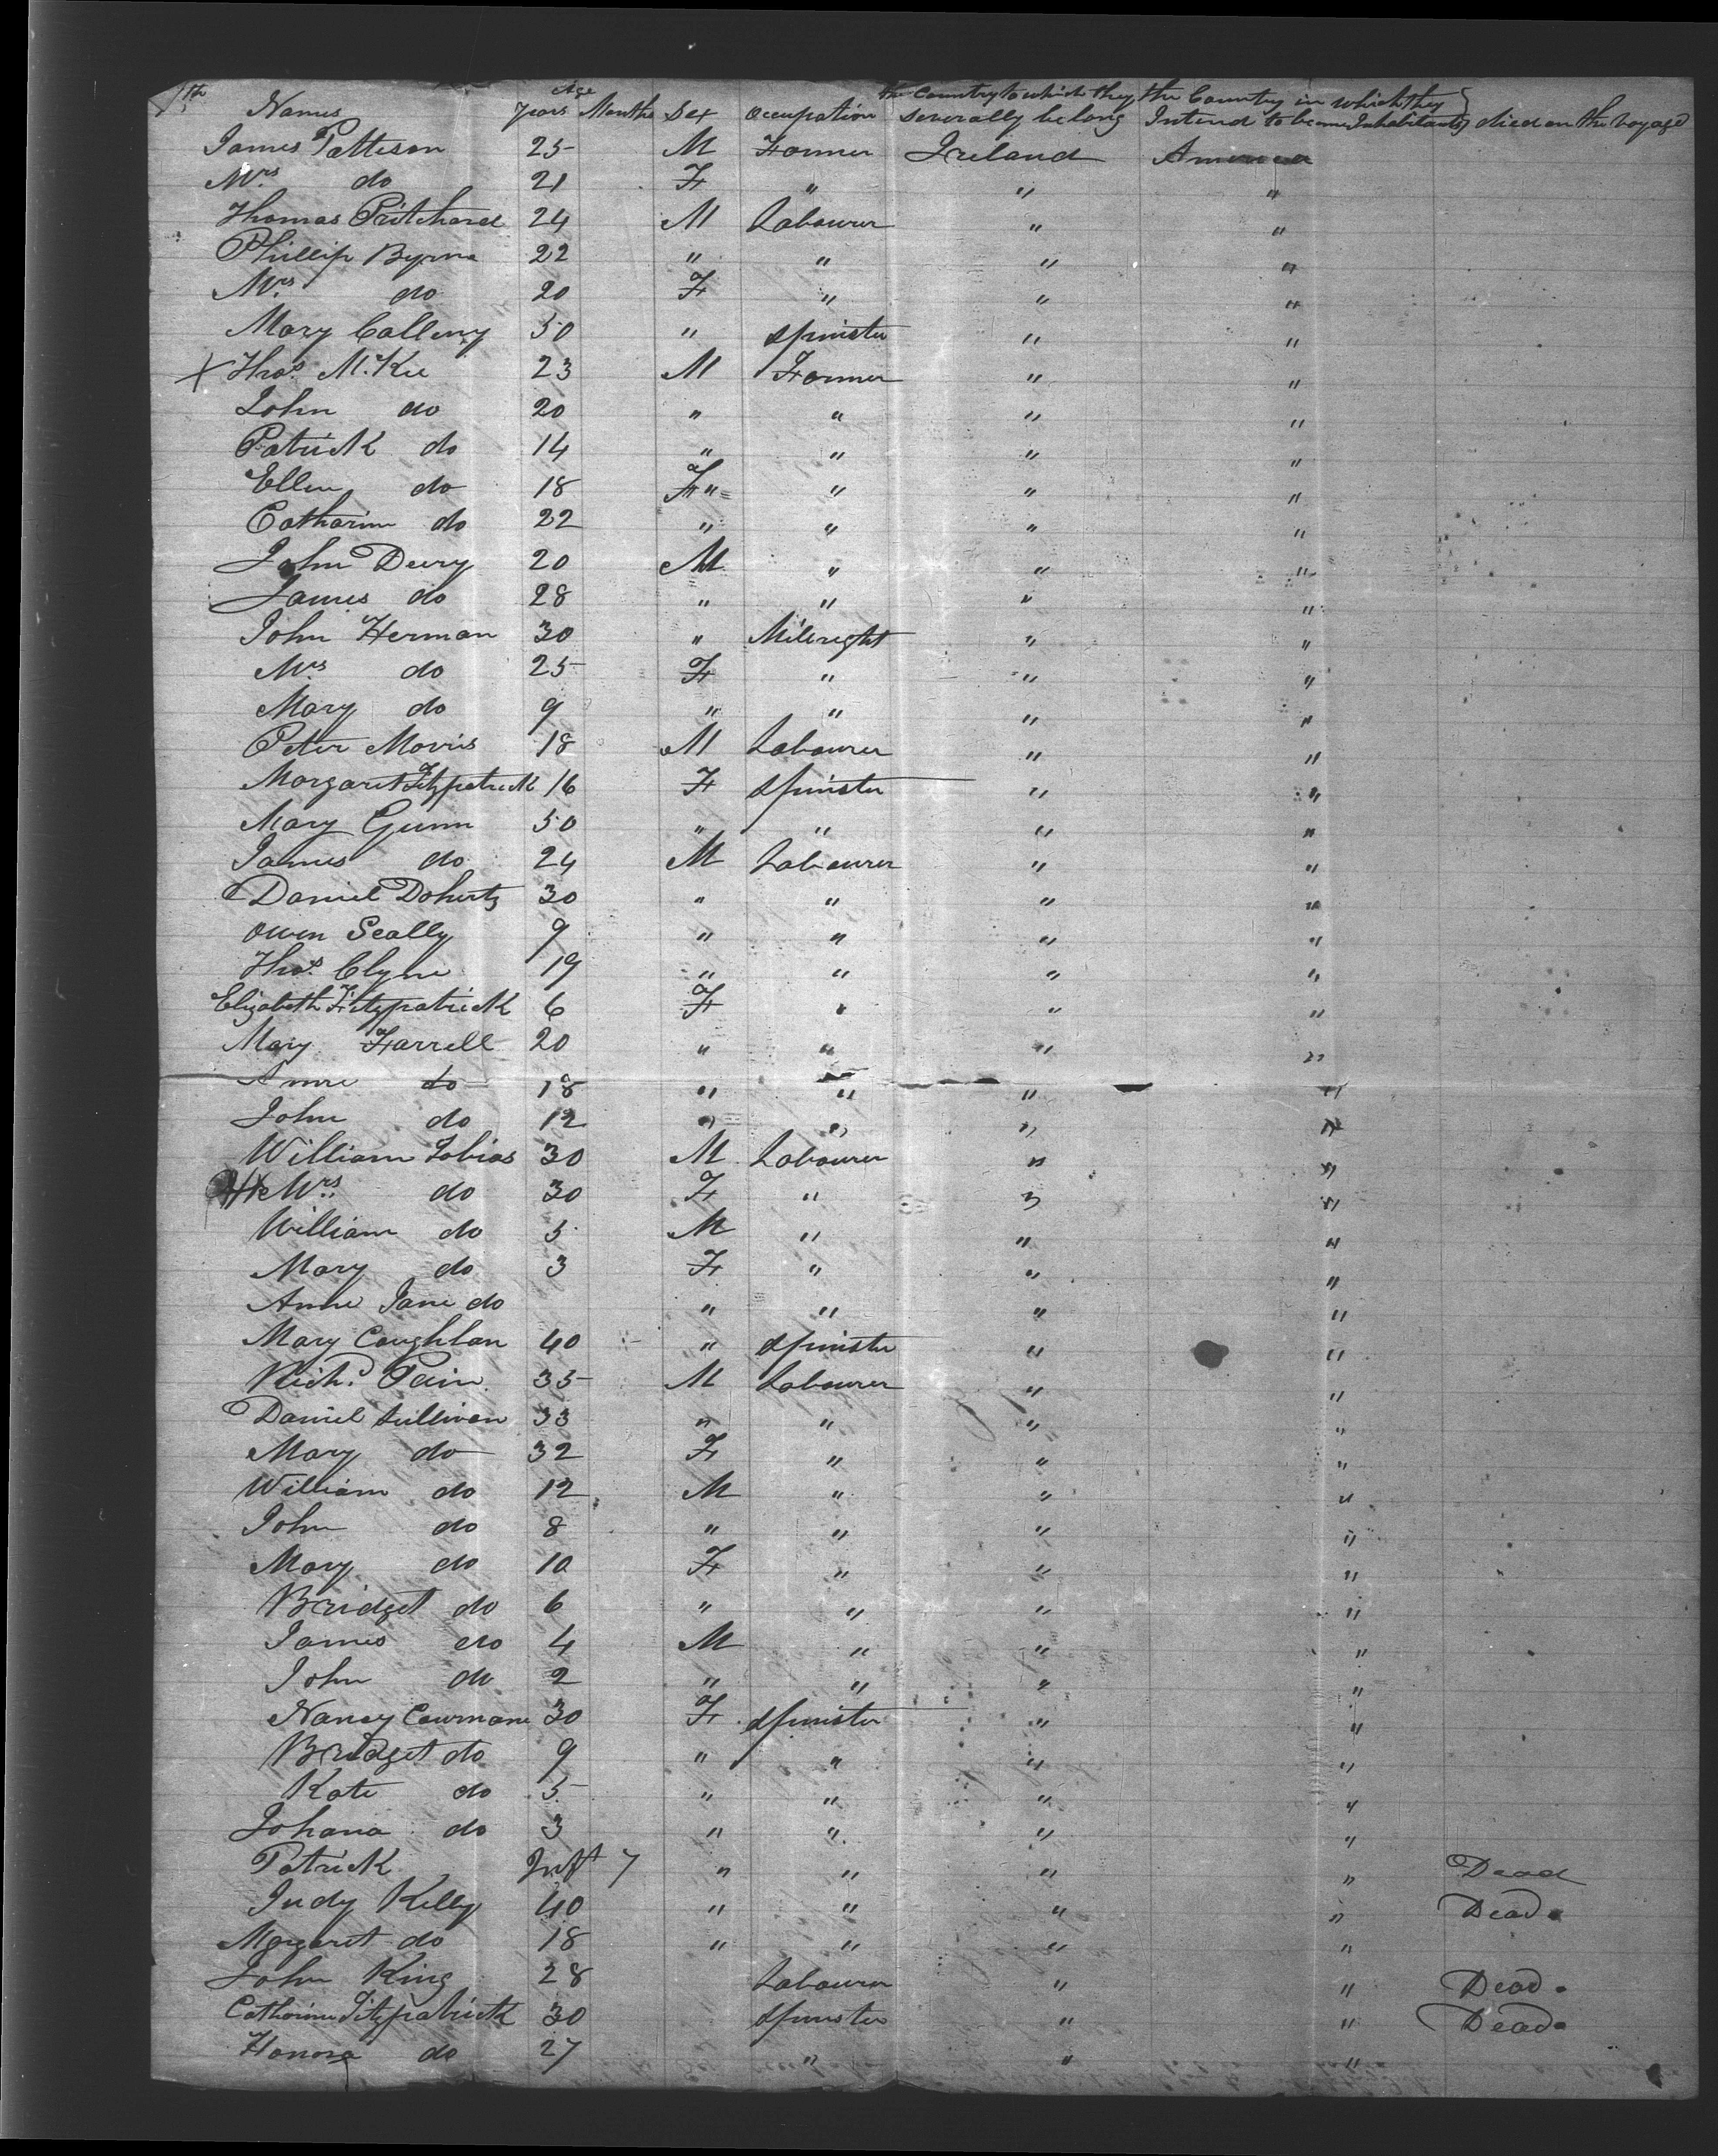 Age the Country to which they the Country in which they
Names Years Months Sex Occupation Severally belong Intend to become Inhabitants died on the Voyage
James Patteson 25 M Farmer Ireland America
Mrs do 21 F " " "
Thomas Pritchard 24 M Labourer " "
Phillip Byrne 22 " " " "
Mrs do 20 F " " "
Mary 50 " Spinster " "
X Thos McKee 23 M Farmer " "
John do 20 " " " "
Patrick do 14 " " " "
Ellen do 18 F " " " "
Catharine do 22 " " " "
John Deery 20 M " " "
James do 28 " " " "
John Herman 30 " Milwright " "
Mrs do 25 F " " "
Mary do 9 " " " "
Peter Morris 18 M Labourer " "
Margaret Fitzpatrick 16 F Spinster " "
Mary Gunn 50 " " " "
James do 24 M Labourer " "
Daniel Doherty 30 " " " "
Owen Scally 9 " " " "
Thos Clyne 19 " " " "
Elizabeth Fitzpatrick 6 F " " "
Mary Farrell 20 " " " "
Anne do 18 " " " "
John do 12 " " " "
William Tobias 30 M Labourer " "
Mrs do 30 F " " "
William do 5 M " " "
Mary do 3 F " " "
Anne Jane do " " " "
Mary Coughlan 40 " Spinster " "
Richd 35 M Labourer " "
Daniel Sullivan 33 " " " "
Mary do 32 F " " "
William do 12 M " " "
John do 8 " " " "
Mary do 10 F " " "
Bridget do 6 " " " "
James do 4 M " " "
John do 2 " " " "
Nancy 30 F Spinster " "
Bridget do 9 " " " "
Kate do 5 " " " "
Johana do 3 " " " "
Patrick Inft 7 " " " " Dead
Judy Kelly 40 " " " " Dead
Margaret do 18 " " " "
John King 28 Labourer " " Dead
Catharine Fitzpatrick 30 Spinster " " Dead
Honora do 27 " " "